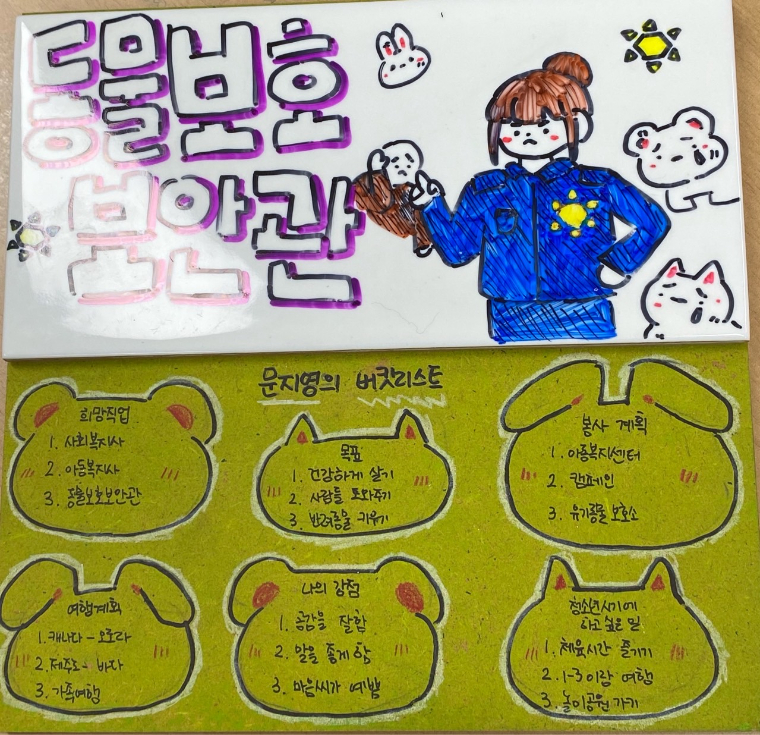 동물보호
보안관
문지영의 버킷리스트
희망직업
1. 사회복지사
2. 아동복지사
3. 동물보호보안관
목표
1. 건강하게 살기
2. 사람들 도와주기
3. 반려동물 키우기
봉사 계획
1. 아동복지센터
2. 캠페인
3. 유기동물 보호소
여행계획
1. 캐나다 - 오로라
2. 제주도 - 바다
3. 가족여행
나의 강점
1. 공감을 잘함
2. 말을 좋게 함
3. 마음씨가 예쁨
청소년시기에
하고 싶은 일
1. 체육시간 즐기기
2. 1-3이랑 여행
3. 놀이공원 가기